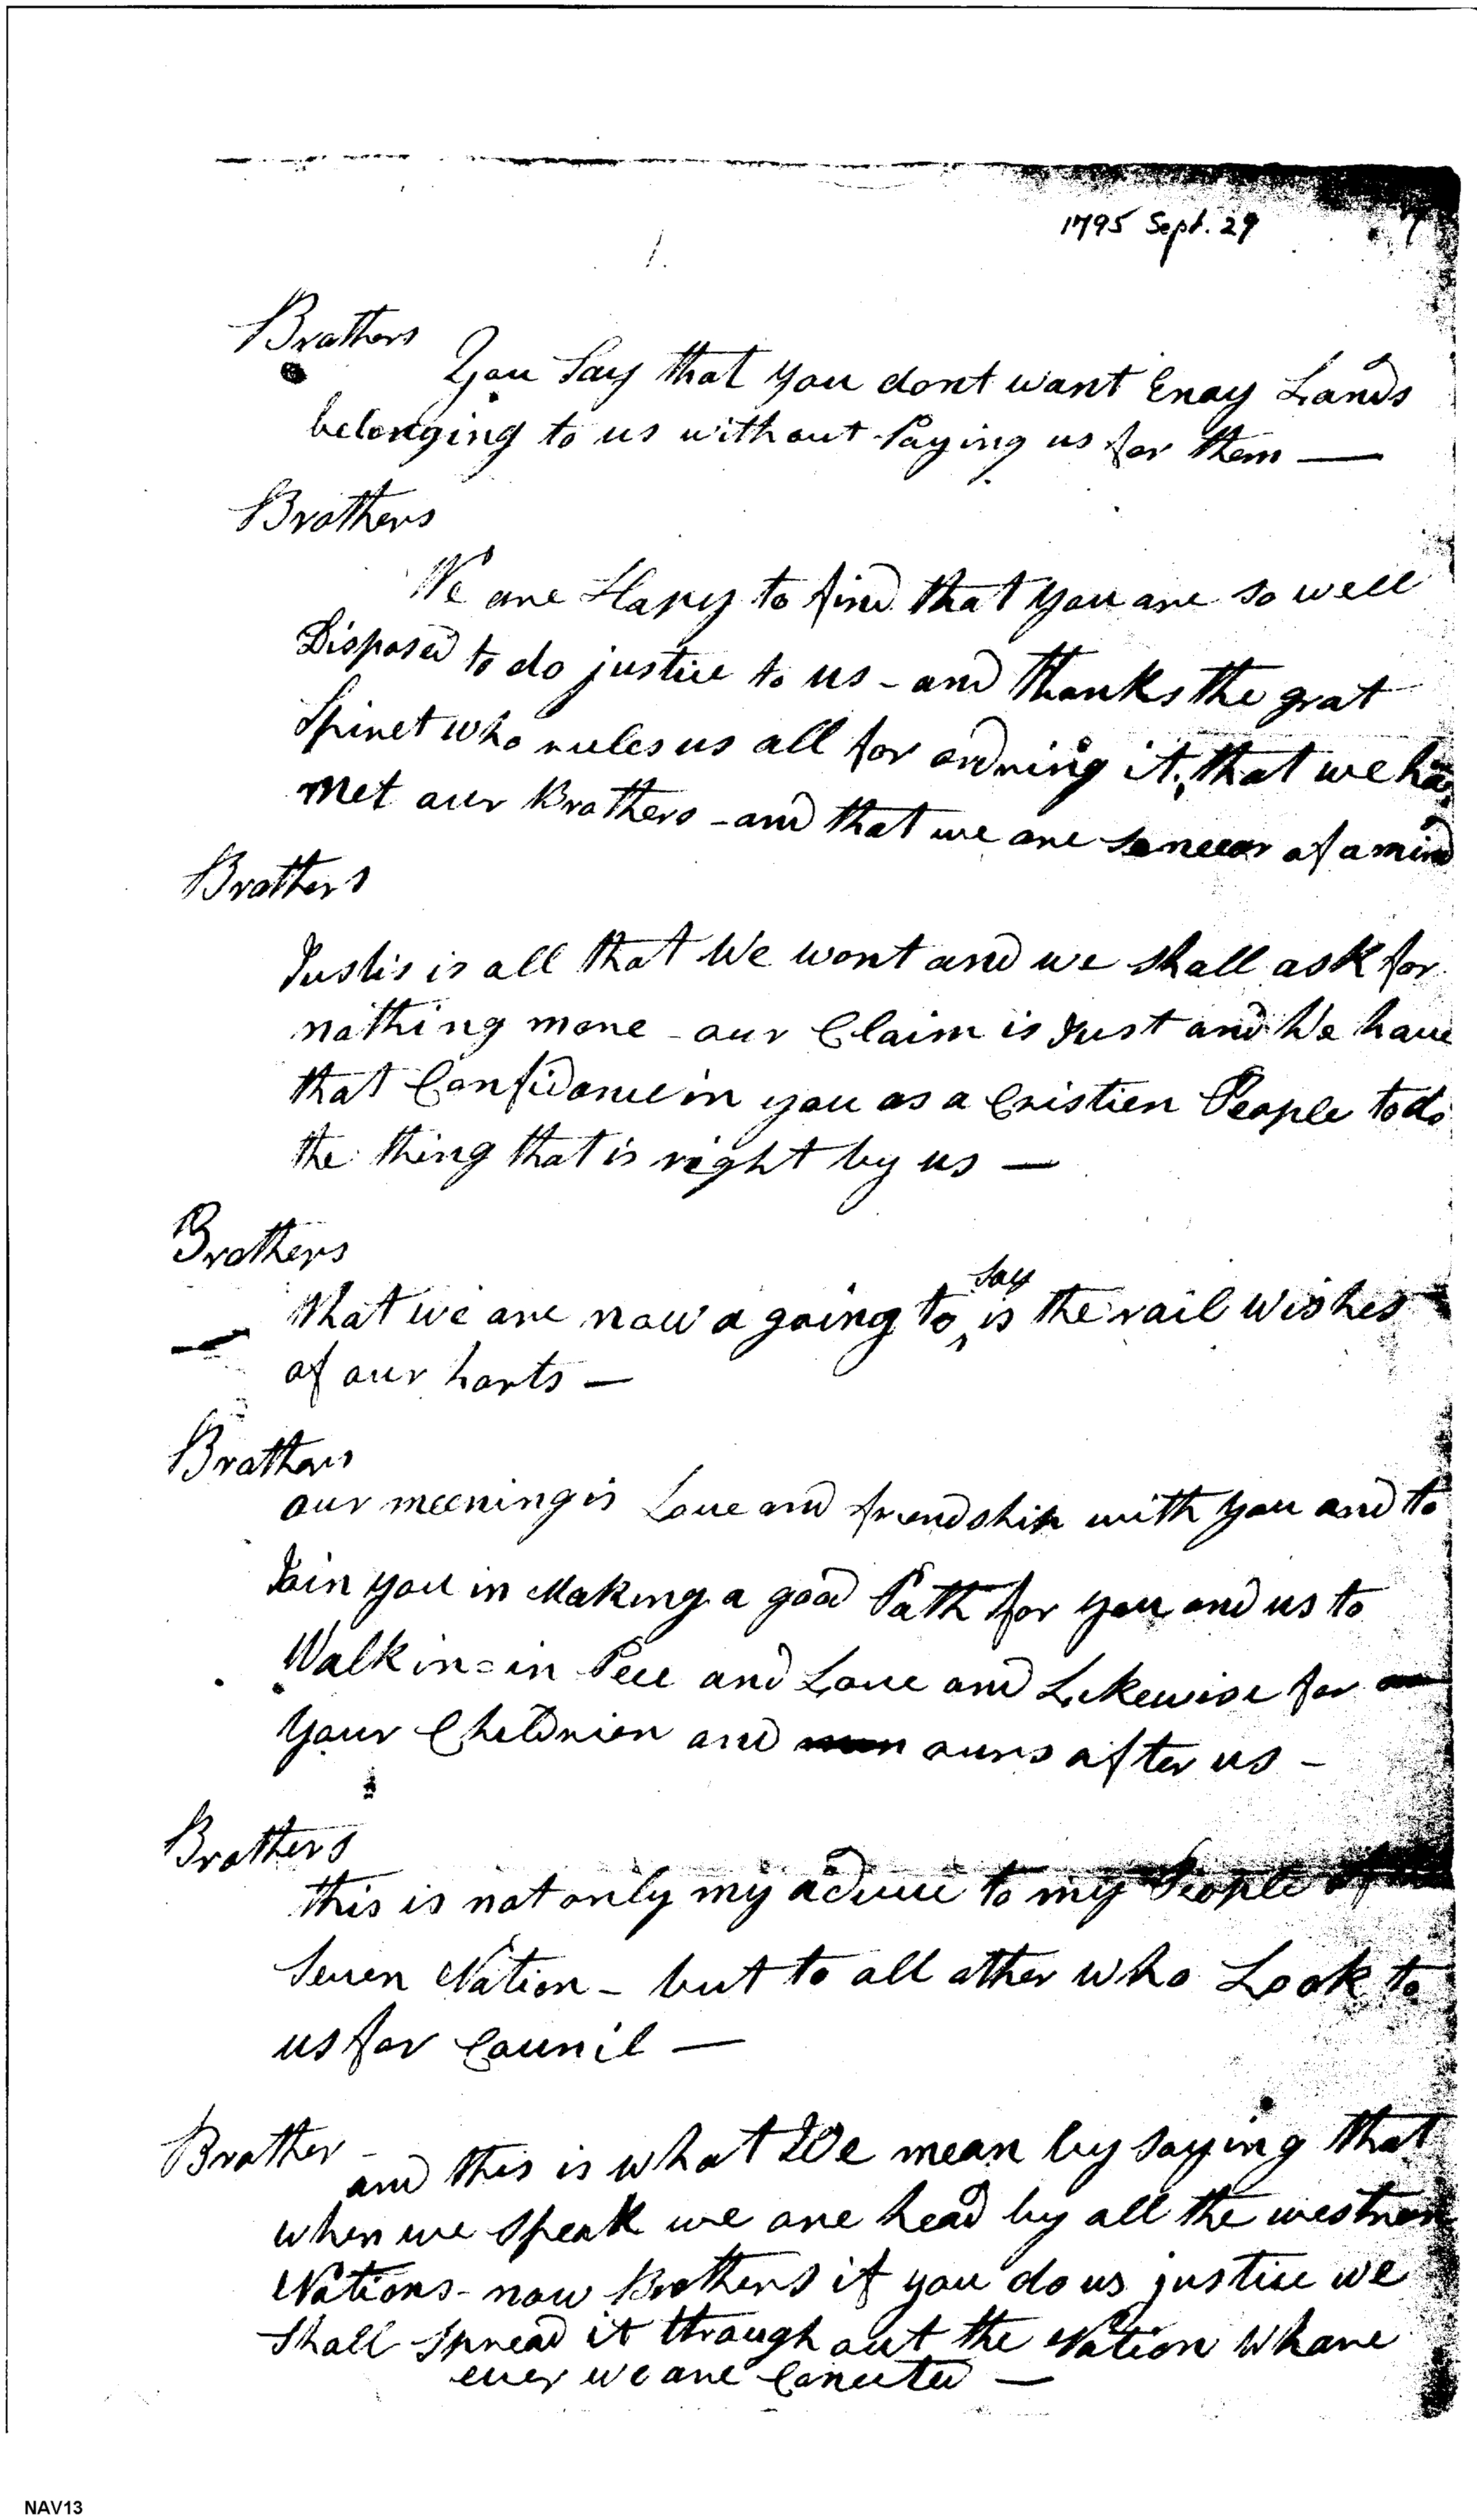 1795 Sept. 29
1.
Brothers
You Say that you dont want Enay Lands
belonging to us without Paying us for them —
Brothers
We are Hapy to find that you are so well
Disposed to do justice to us - and thanks the grat
Spiret who rules us all for ordring it, that we
Met our Brothers - and that we are of a mind
Brothers
Justis is all that We wont and we shall ask for
nothing more - our Claim is Just and We have
that Confidance in you as a Cristien People to do
the thing that is right by us —
Brothers
What we are now a going to say is the rail wishes
of our harts —
Brothers
our meening is Love and friendship with you and to
Join you in Making a good Path for you and us to
Walk in - in Pece and Love and Likewise for
your Children and ours after us -
Brothers
this is not only my advice to my People of
Seven Nation - but to all other who Look to
us for Council —
Brother -
and this is what We mean by saying that
when we speak we are head by all the westren
Nations - now Brothers if you do us justice we
Shall Spread it through out the Nation Whare
ever we are Conected —
NAV13